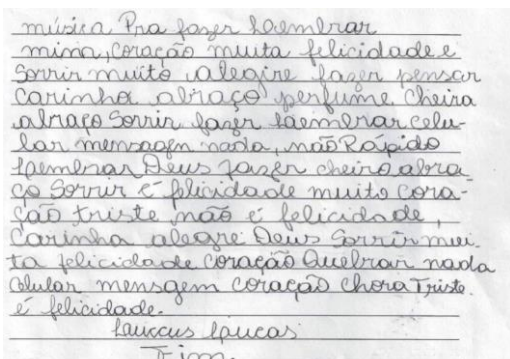 música Pra fazer lembrar
mima, coração muita felicidade e
Sorrir muito alegire fazer pensar
Carinha abraço perfume, cheira
abraço Sorrir fazer laembrar celu-
lar mensagen nada, não Rápido
lembrar Deus fazer cheiro abra
ço Sorrir é felicidade muito cora-
ção triste não é felicidade,
Carinha alegre Deus Sorrir mui-
ta felicidade coração Quebrar nada
celular mensgem coração chora Triste.
é felicidade.
Fim.